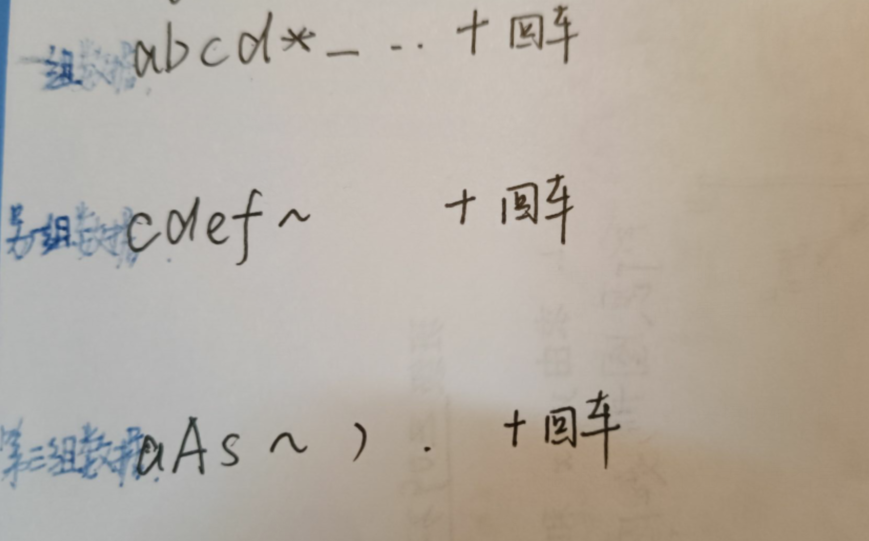 一组数据 abcd*_ -·· + 回车
另一组数据 cdef~ + 回车
第三组数据 aAs ~ ) . + 回车